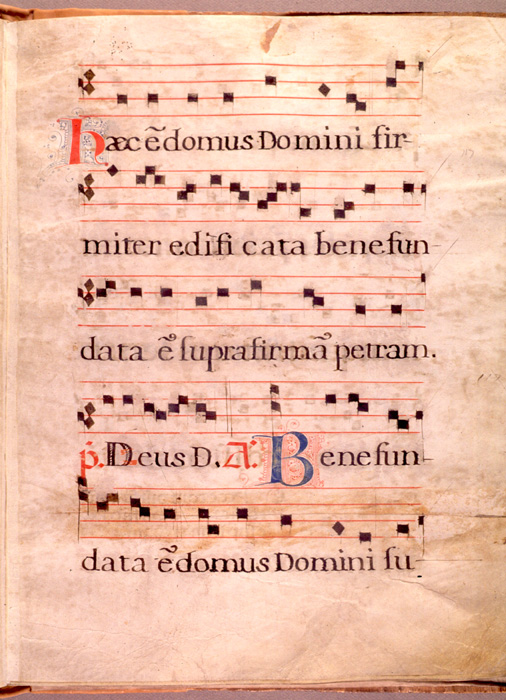 Hæc ē domus Domini fir-
miter edificata bene fun-
data ē supra firmā petram.
p̄. Deus D. A. Benefun-
data ē domus Domini su-